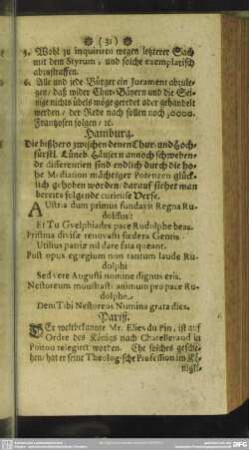 (31)
5. Wohl zu inquiriren wegen letzterer Sach
mit dem Styrum, und solche exemplarisch
abzustraffen.
6. Alle und jede Bürger ein Jurament abzule-
gen/ daß wider Chur-Bäyern und die Sei-
nige nichts übels möge geredet oder gehandelt
werden/ der Rede nach sollen noch 30000.
Frantzosen folgen/ ꝛc.
Hamburg.
Die bißhero zwischen denen Chur- und Hoch-
fürstl. Lüneb. Häusern annoch schweben-
de differentien sind endlich durch die ho-
he Mediation mächtiger Potenzen glück-
lich gehoben worden/ darauf siehet man
bereits folgende curieuse Verse.
AUstria dum primus fundavit Regna Ru-
dolffus:
Et Tu Gvelphiades pace Rudolphe beas.
Pristina divisæ renovasti fœdera Gentis
Utilius patriæ nil dare fata queant.
Post opus egregium non tantum laude Ru-
dolphi
Sed vere Augusti nomine dignus eris.
Nestoreum monstrasti animum pro pace Ru-
dolphe,
Deni Tibi Nestoreos Numina grata dies.
Pariß.
DEr weltbekannte Mr. Elies du Pin, ist auf
Ordre des Königs nach Chatelleraud in
Poitou relegiret worden. Ehe solches gesche-
hen/ hat er seine Theologische Profession im Kö-
nigl.